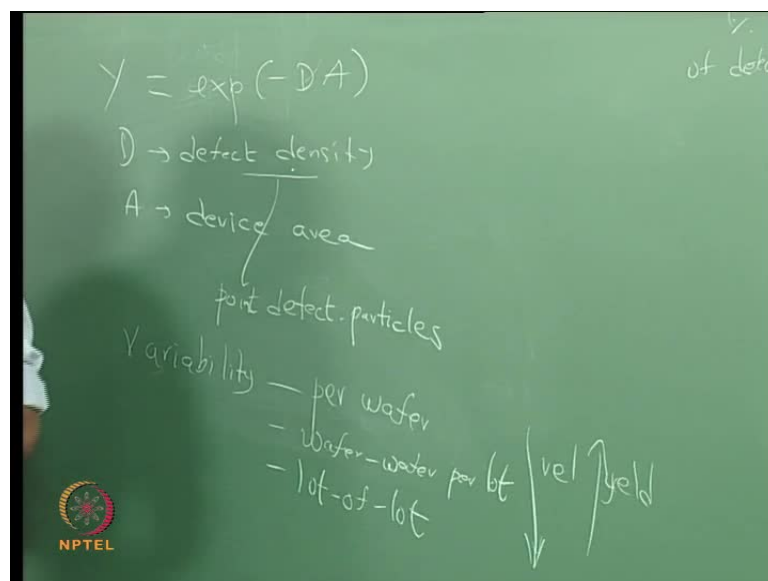 %
of
Y = exp(-DA)
D → defect density
A → device area
point defect. particles
Variability - per wafer
- wafer-wafer per lot
- lot-of-lot
↓ vel ↑ yeld
NPTEL